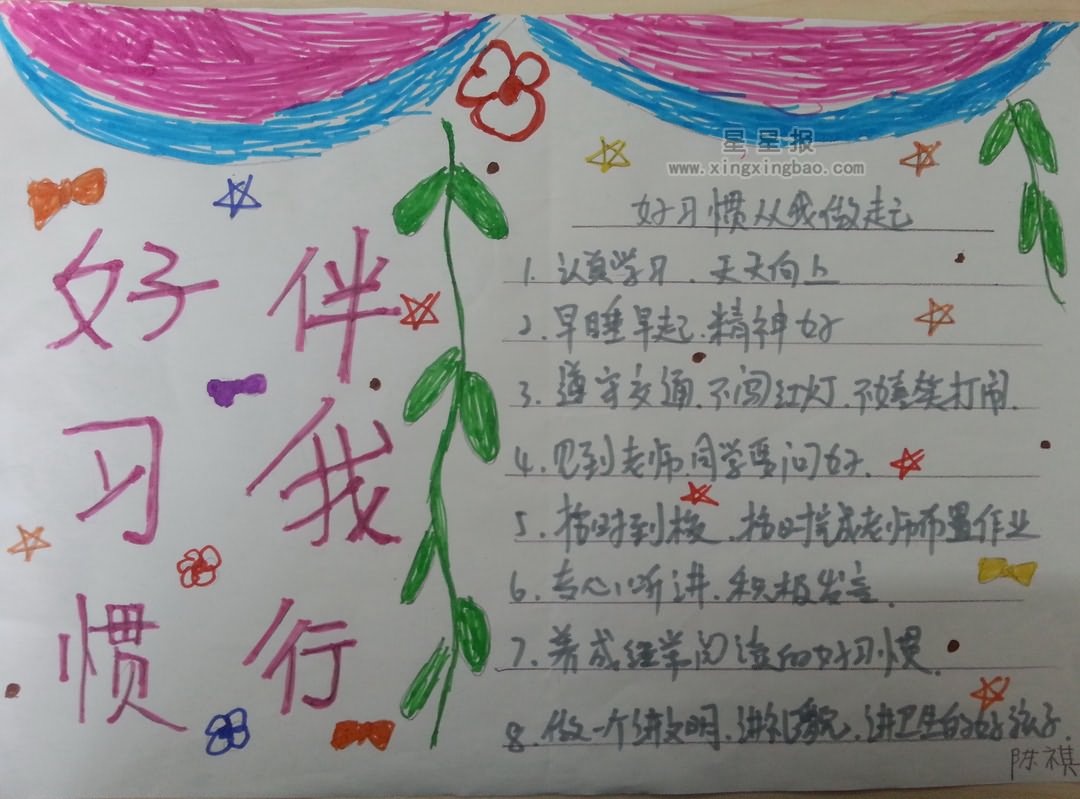 星星报
www.xingxingbao.com
好习惯
伴我行
好习惯从我做起
1. 认真学习、天天向上
2. 早睡早起、精神好
3. 遵守交通、不闯红灯、不嬉笑打闹.
4. 见到老师同学要问好.
5. 按时到校、按时完成老师布置作业
6. 专心听讲、积极发言.
7. 养成经常阅读的好习惯.
8. 做一个讲文明、讲礼貌、讲卫生的好孩子.
陈祺